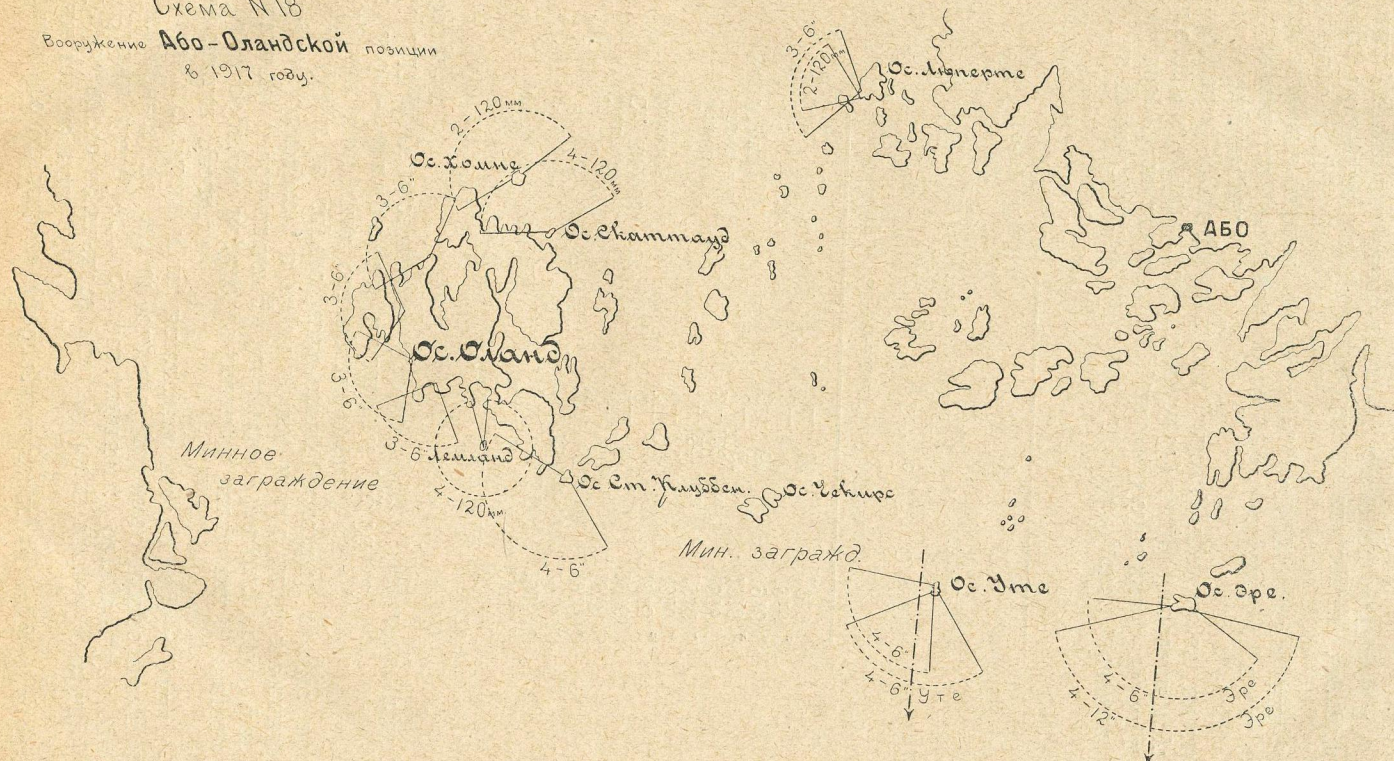 Схема N 18
Вооружение Або-Оландской позиции
в 1917 году.
3-6"
2-120мм
Ос. Люперте
2-120мм
Ос. Хомне
4-120мм
3-6"
Ос. Скаттауд
АБО
3-6"
Ос. Оланд
3-6"
3-6"
Лемланд
Минное
заграждение
Ос Ст. Клуббен.
Ос. Чекирс
4-120мм
4-6"
Мин. загражд.
Ос. Уте
Ос. Эре.
4-6"
4-6" Уте
4-6" Эре
4-12" Эре